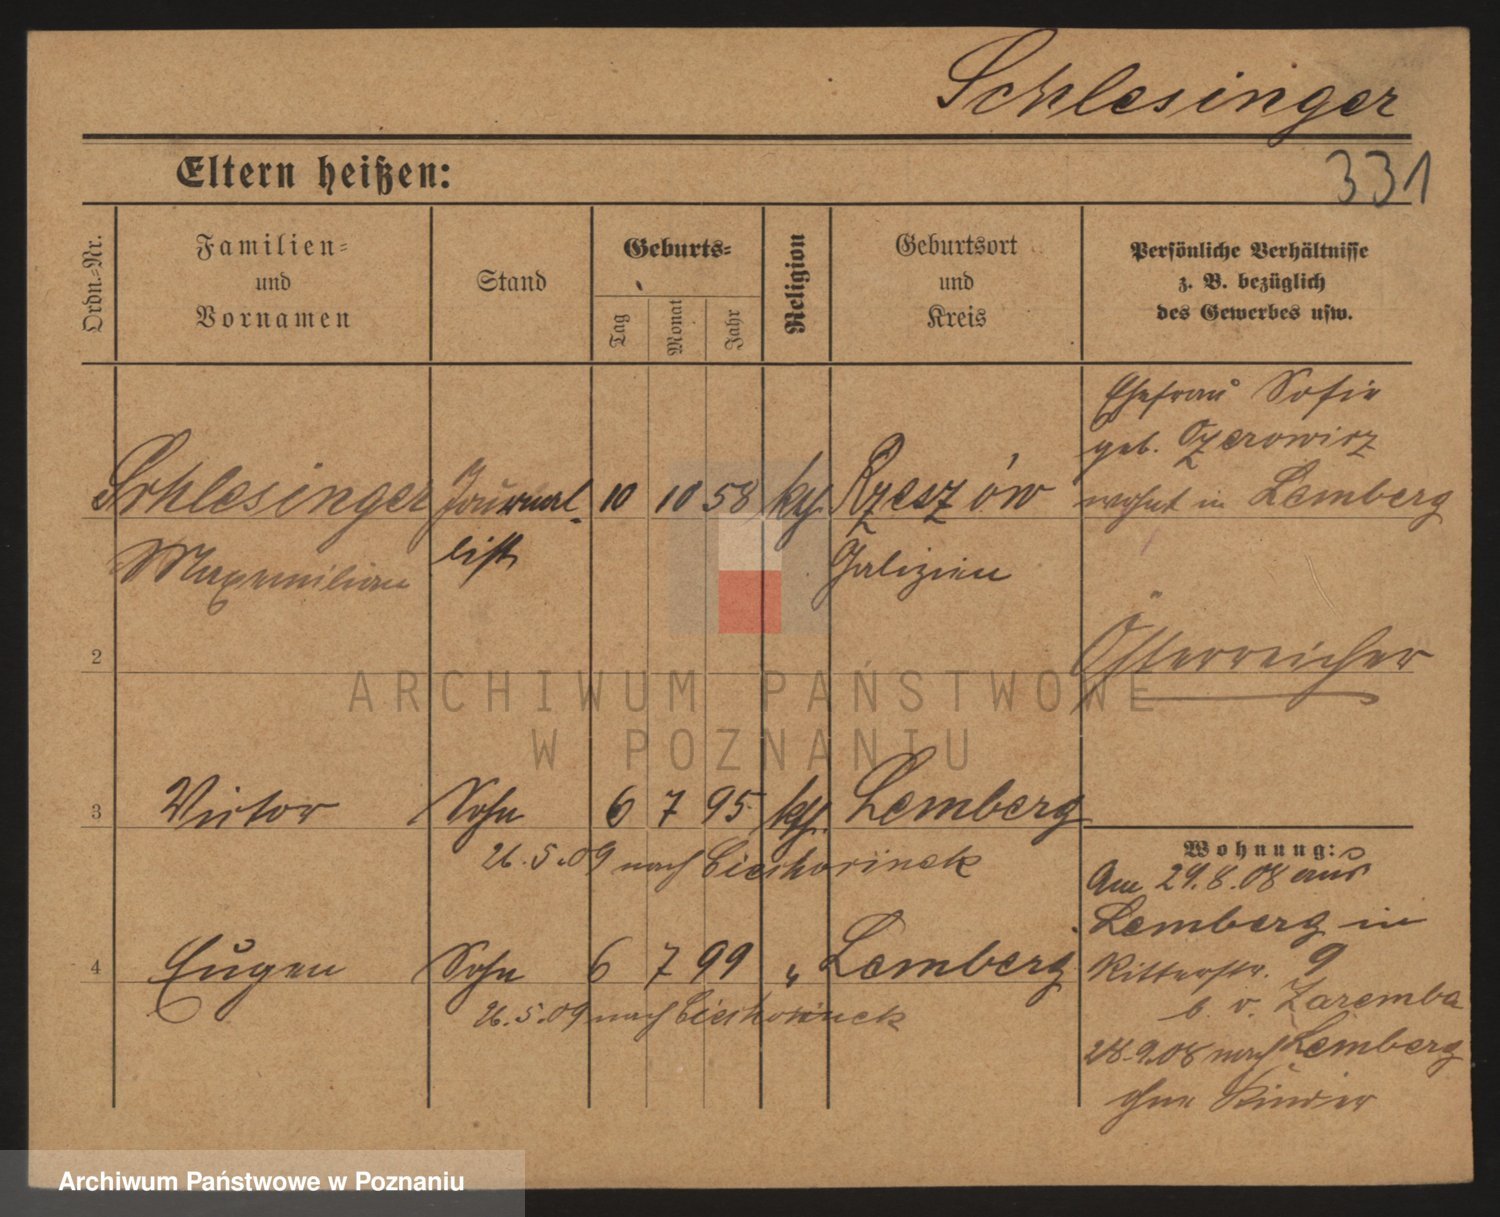 Schlesinger
Eltern heißen:
331
Ordn.-Nr.
Familien-
und
Vornamen
Stand
Geburts-
Tag
Monat
Jahr
Religion
Geburtsort
und
Kreis
Persönliche Verhältnisse
z. B. bezüglich
des Gewerbes usw.
Ehefrau Sofie
geb.
wohnt in Lemberg
Schlesinger Journal- 10 10 58 kth. Rzeszów
Maxemilian list Galizien
Österreicher
2
3 Victor Sohn 6 7 95 kth. Lemberg
26.5.09 nach Ciechorinek
Wohnung:
Am 29.8.08 aus
Lemberg in
Ritterstr. 9
b. v. Zaremba
28.9.08 nach Lemberg
ohne Kinder
4 Eugen Sohn 6 7 99 " Lemberg
26.5.09 nach Ciechorinek
ARCHIWUM PAŃSTWOWE
W POZNANIU
Archiwum Państwowe w Poznaniu